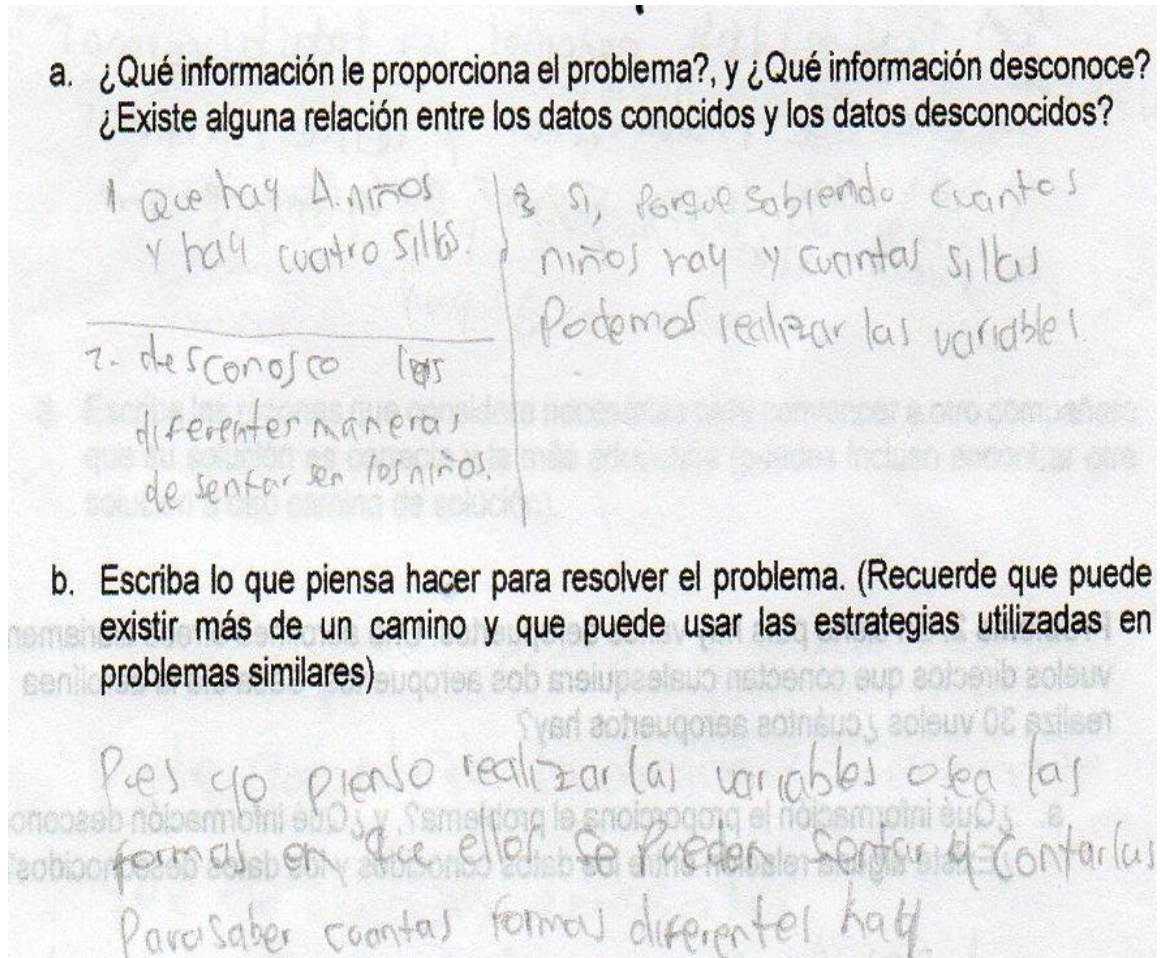 a. ¿Qué información le proporciona el problema?, y ¿Qué información desconoce?
¿Existe alguna relación entre los datos conocidos y los datos desconocidos?
1. Que hay 4. niños
y hay cuatro sillas.
2. desconosco las
diferentes maneras
de sentar sen los niños.
3 si, Porque sabiendo cuantos
niños hay y cuantas sillas
Podemos realizar las variables
b. Escriba lo que piensa hacer para resolver el problema. (Recuerde que puede
existir más de un camino y que puede usar las estrategias utilizadas en
problemas similares)
Pues yo pienso realizar las variables osea las
formas en que ellos se pueden sentar y contarlas
Para saber cuantas formas diferentes hay